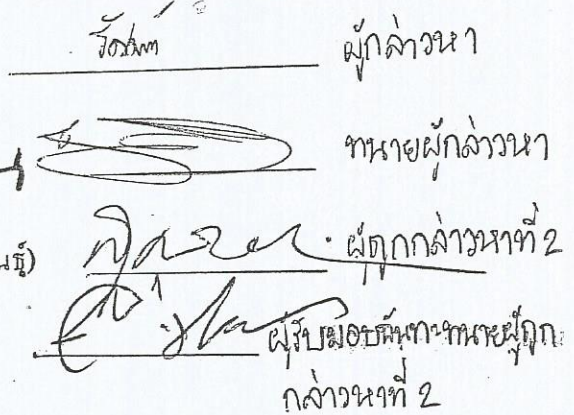 ผู้กล่าวหา
ทนายผู้กล่าวหา
นธุ์) ผู้ถูกกล่าวหาที่ 2
ผู้รับมอบฉันทะทนายผู้ถูก
กล่าวหาที่ 2